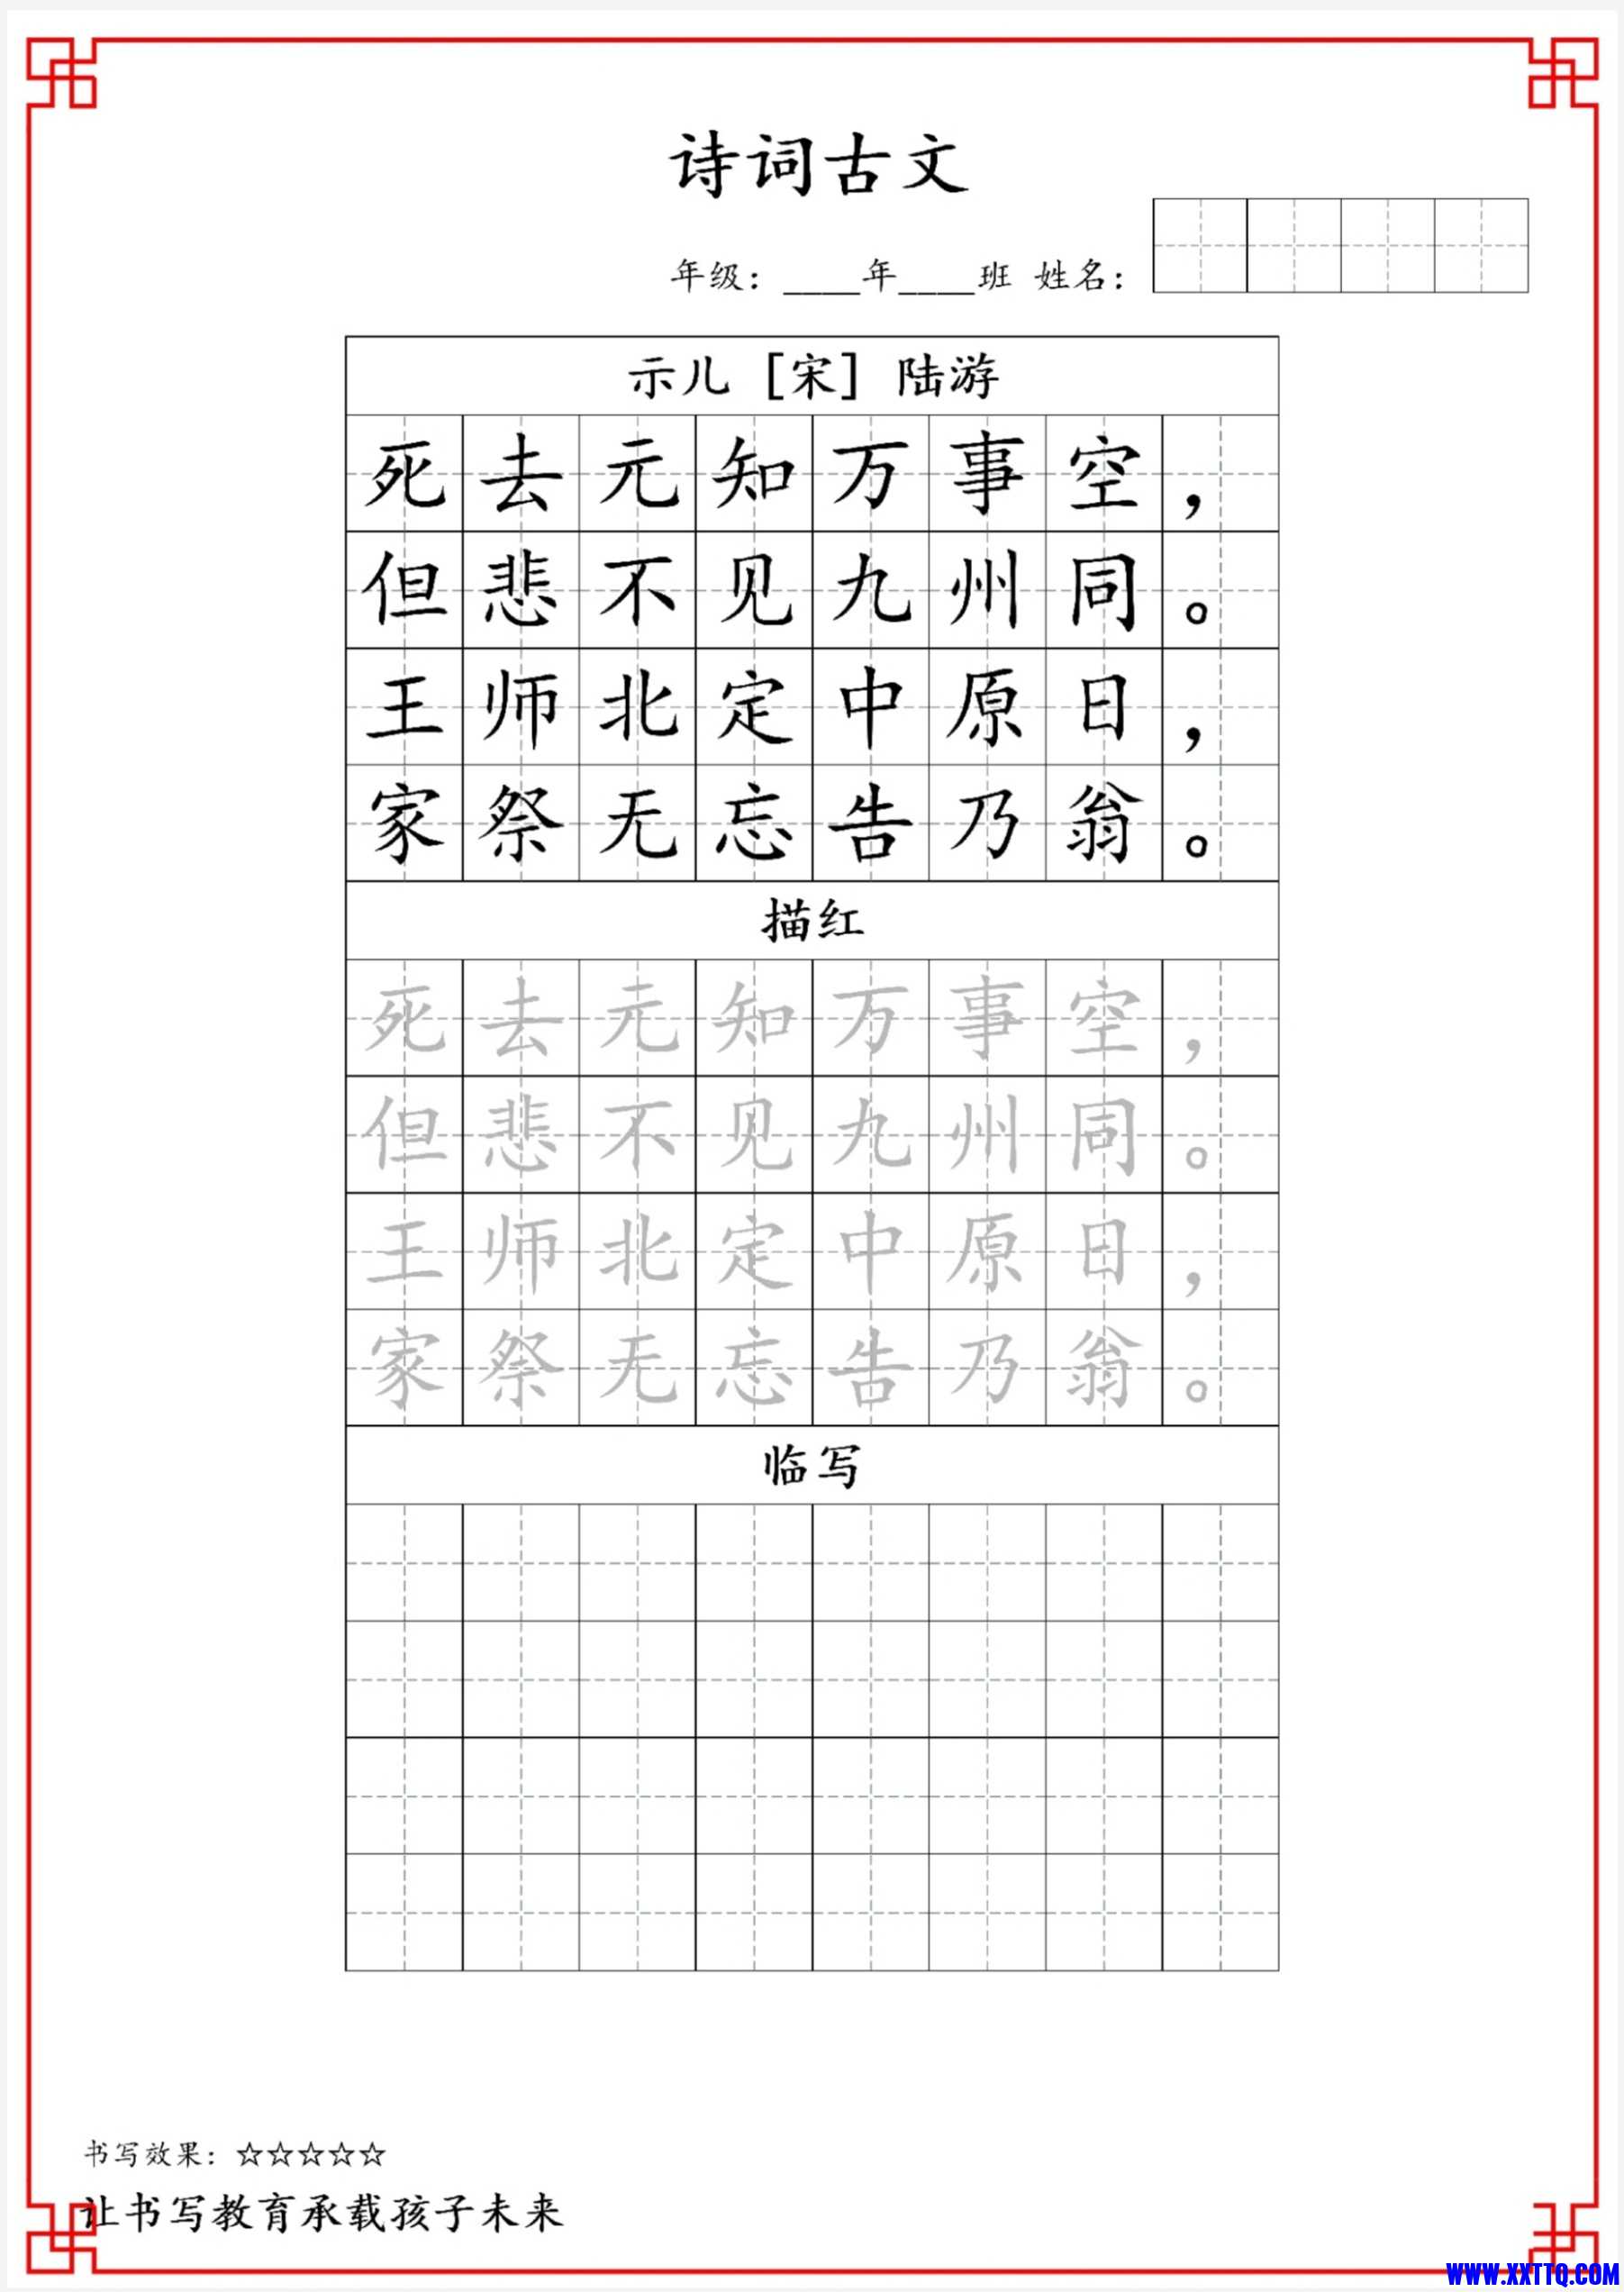 诗词古文
年级：____年____班 姓名：
示儿［宋］陆游
死去元知万事空，
但悲不见九州同。
王师北定中原日，
家祭无忘告乃翁。
描红
死去元知万事空，
但悲不见九州同。
王师北定中原日，
家祭无忘告乃翁。
临写
书写效果：☆☆☆☆☆
让书写教育承载孩子未来
WWW.XXTTQ.COM